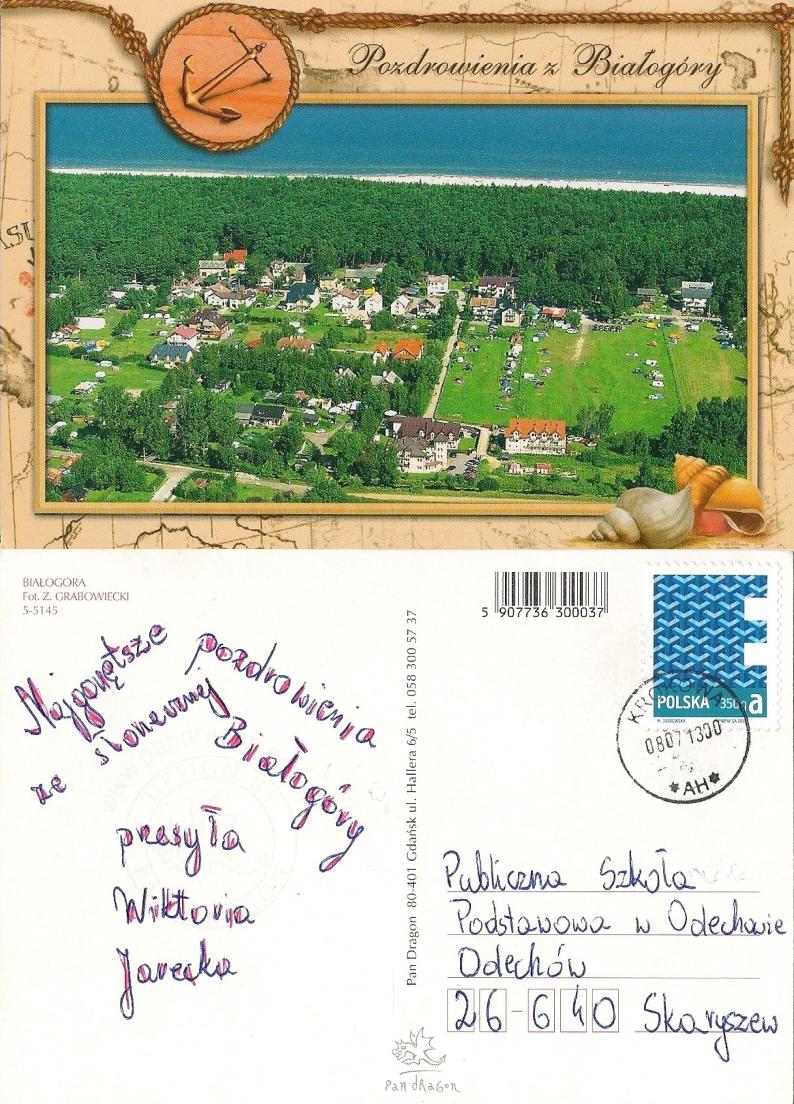 Pozdrowienia z Białogóry
BIAŁOGÓRA
Fot. Z. GRABOWIECKI
5-5145
5 907736 300037
Najgorętsze pozdrowienia
ze słonecznej Białogóry
przesyła
Wiktoria
Jarecka
Pan Dragon 80-401 Gdańsk ul. Hallera 6/5 tel. 058 300 57 37
POLSKA 350g a
KROKOWA
08071300
*AH*
Publiczna Szkoła
Podstawowa w Odechowie
Odechów
26-640 Skaryszew
pan dRagon